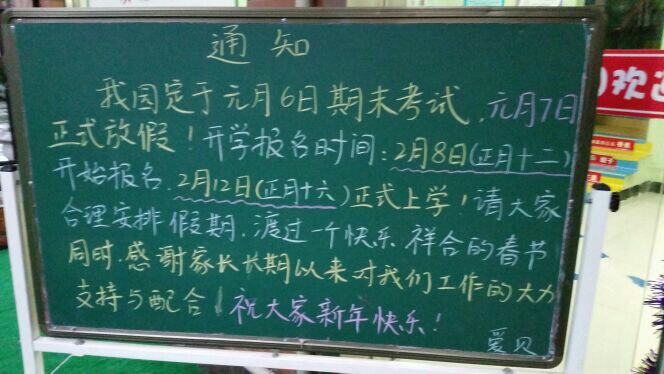 通知
我园定于元月6日期末考试,元月7日
正式放假!开学报名时间:2月8日(正月十二)
开始报名.2月12日(正月十六)正式上学!请大家
合理安排假期,渡过一个快乐祥合的春节
同时.感谢家长长期以来对我们工作的大力
支持与配合!祝大家新年快乐!
爱贝
欢迎